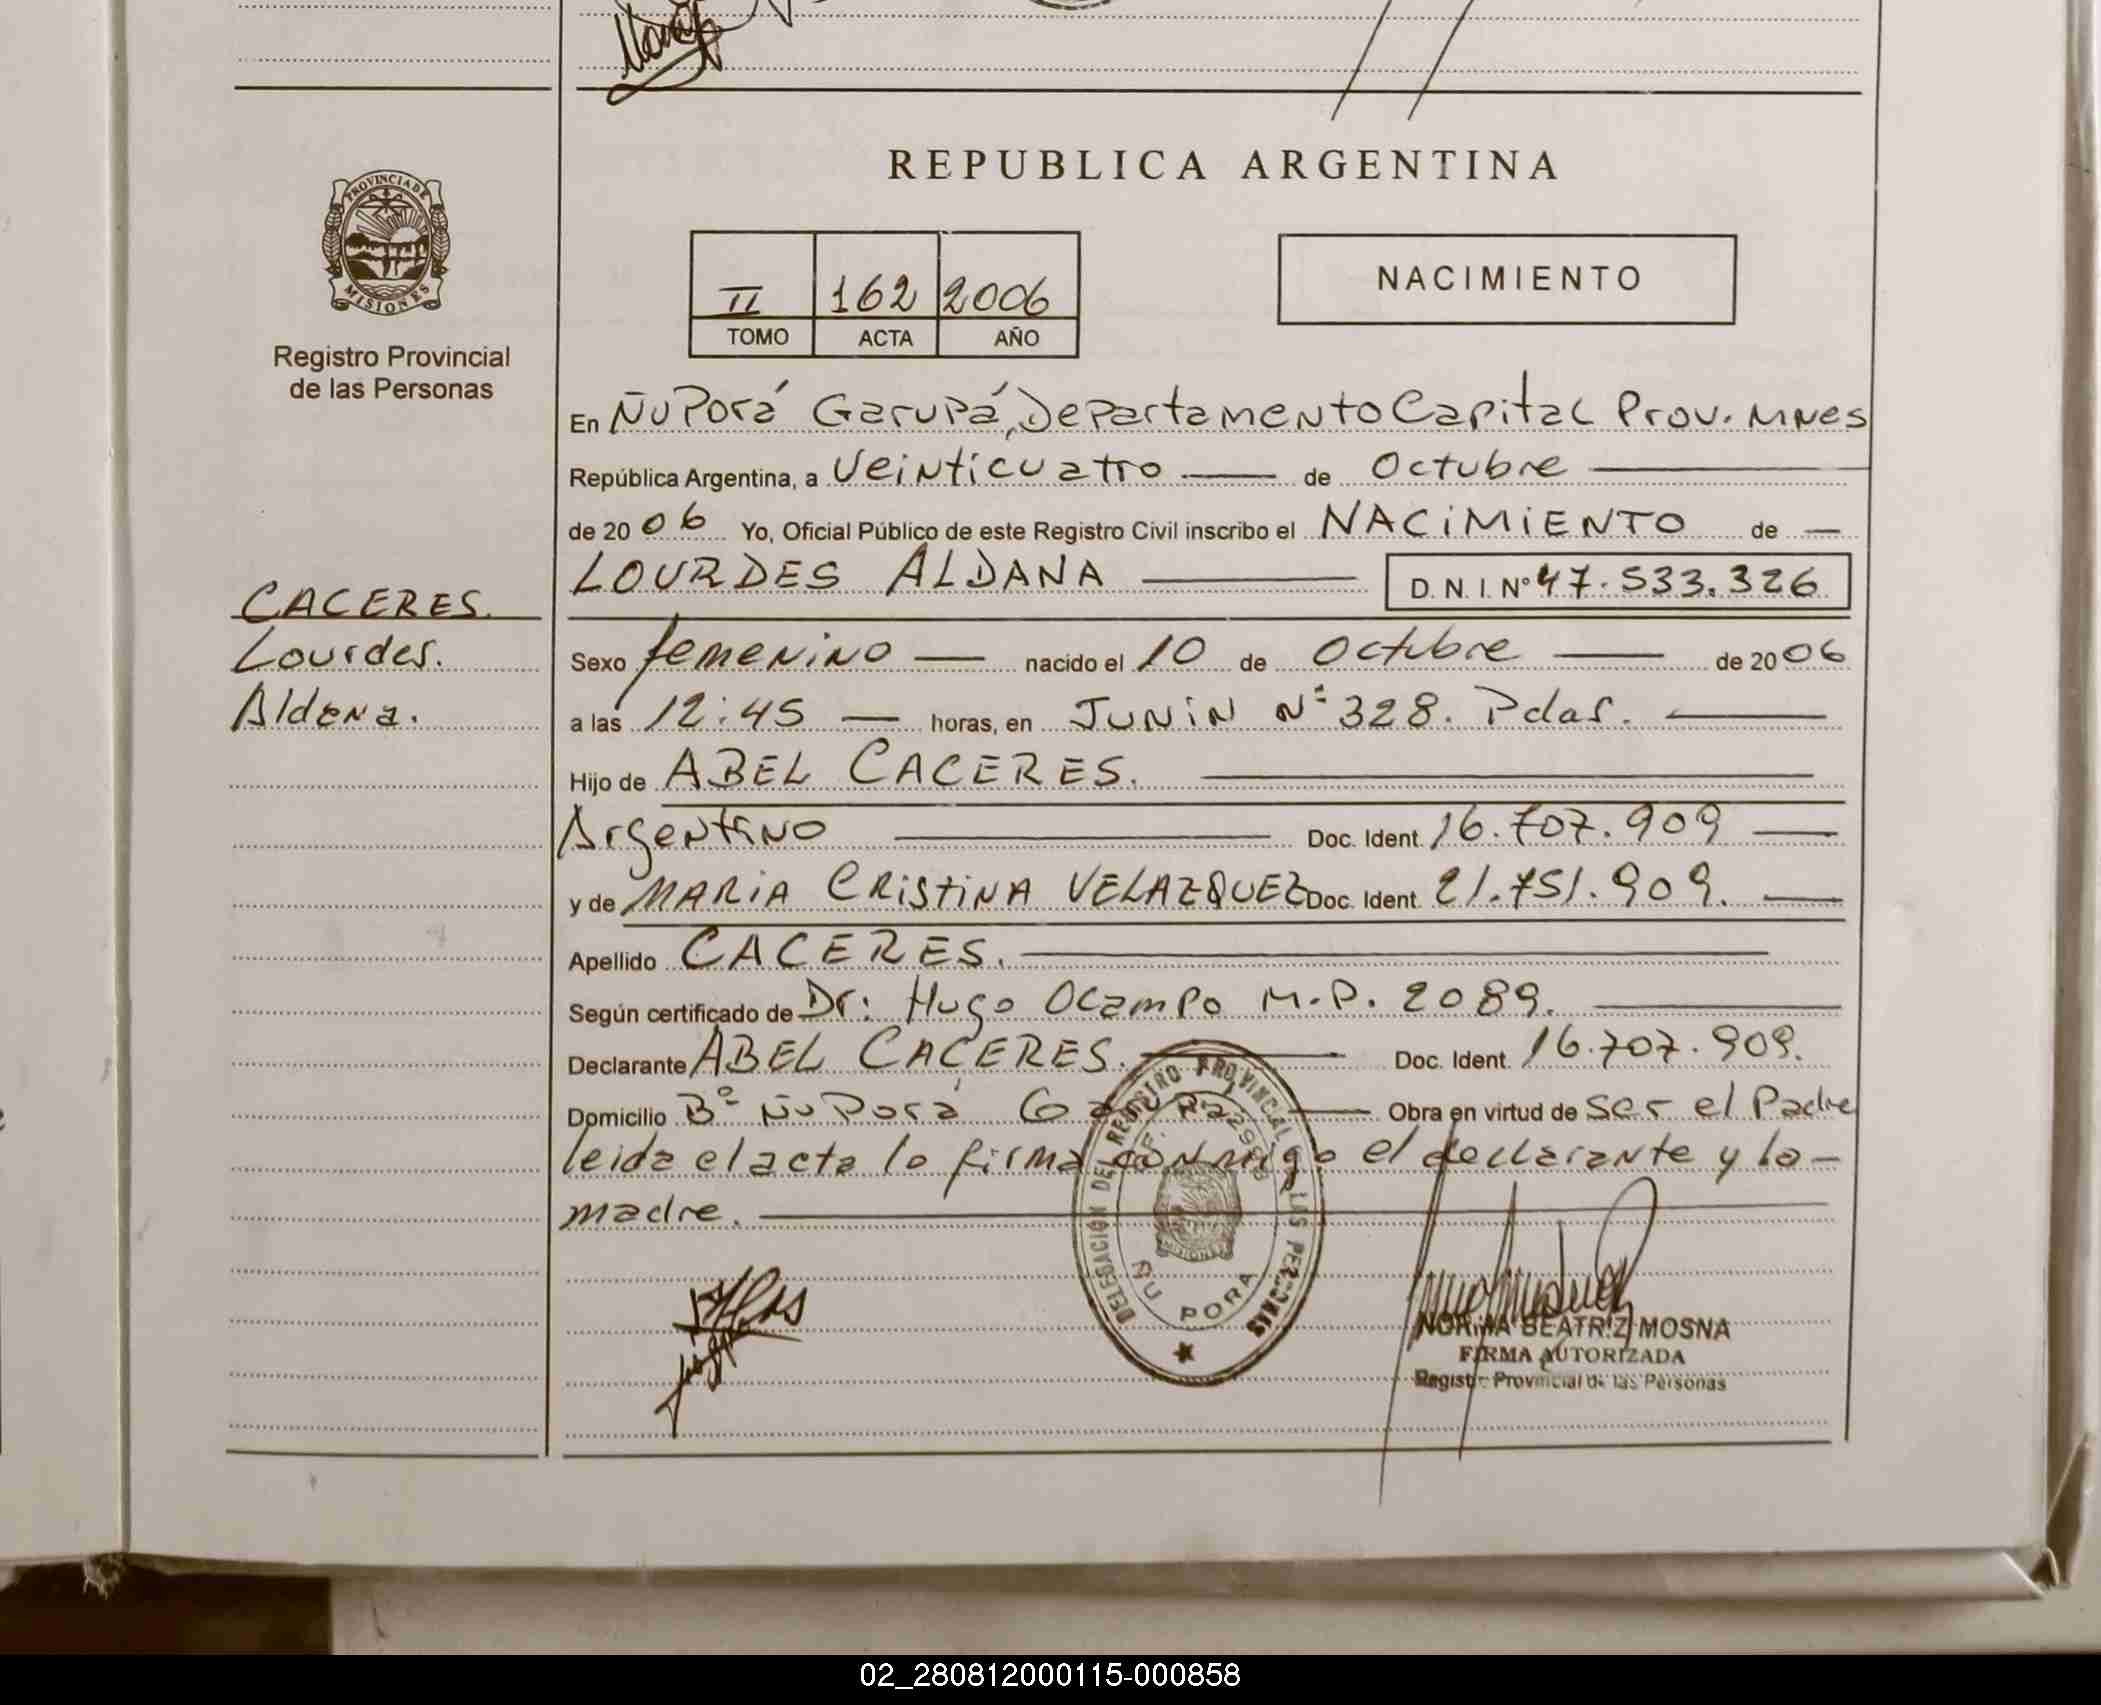 REPUBLICA ARGENTINA
PROVINCIA DE
MISIONES
Registro Provincial
de las Personas
II 162 2006
TOMO ACTA AÑO
NACIMIENTO
En Ñu Porá Garupá, Departamento Capital Prov. Mnes
República Argentina, a Veinticuatro — de Octubre —
de 2006 Yo, Oficial Público de este Registro Civil inscribo el NACIMIENTO de —
LOURDES ALDANA — D.N.I. Nº 47.533.326
CACERES.
Lourdes.
Aldana.
Sexo femenino — nacido el 10 de Octubre — de 2006
a las 12:45 — horas, en JUNIN Nº 328. Pdas. —
Hijo de ABEL CACERES. —
Argentino — Doc. Ident. 16.707.909 —
y de MARIA CRISTINA VELAZQUEZ Doc. Ident. 21.751.909. —
Apellido CACERES. —
Según certificado de Dr: Hugo Ocampo M.P. 2089. —
Declarante ABEL CACERES. — Doc. Ident. 16.707.909.
Domicilio Bº Ñu Porá Garupá. — Obra en virtud de ser el Padre
leida el acta lo firma conmigo el declarante y la —
madre. —
DELEGACIÓN DEL REGISTRO PROVINCIAL DE LAS PERSONAS
MISIONES
ÑU PORA
NORMA BEATRIZ MOSNA
FIRMA AUTORIZADA
Registro Provincial de las Personas
02_280812000115-000858